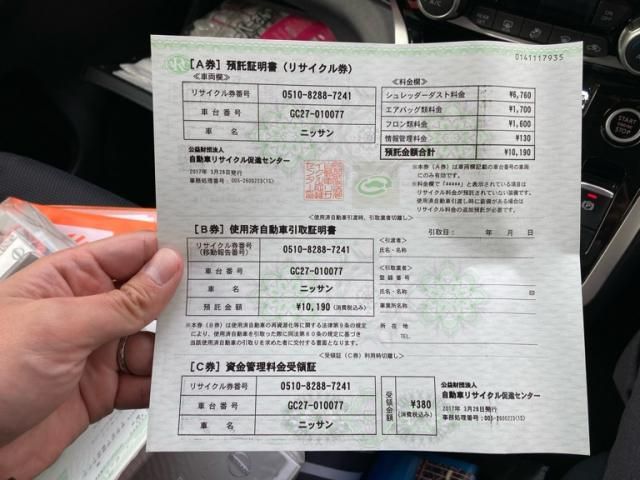 0141117935
[A券] 預託証明書 (リサイクル券)
<車両欄>
リサイクル券番号 0510-8288-7241
車台番号 GC27-010077
車名 ニッサン
公益財団法人
自動車リサイクル促進センター
2017年 3月28日発行
<料金欄>
シュレッダーダスト料金 ¥6,760
エアバッグ類料金 ¥1,700
フロン類料金 ¥1,600
情報管理料金 ¥130
預託金額合計 ¥10,190
※本券 (A券) は車両欄記載の車台番号の車両
にのみ有効です。
※料金欄で「*****」と表示されている項目は
リサイクル料金が預託されていない装備です。
使用済自動車引渡し時に装備がある場合は
リサイクル料金の追加預託が必要です。
<使用済自動車引渡時、引取業者切離し>
[B券] 使用済自動車引取証明書
引取日: 年 月 日
リサイクル券番号
(移動報告番号) 0510-8288-7241
車台番号 GC27-010077
車名 ニッサン
預託金額 ¥10,190 (消費税込み)
<引渡者>
氏名・名称
<引取業者>
登録番号
氏名・名称 印
事業所名称
所在地
TEL.
※本券 (B券) は使用済自動車の再資源化等に関する法律第9条の規定
により、使用済自動車を引取った際に同法第80条の規定に基づき
当該使用済自動車の引取りを求めた者に交付する書面となります。
<受領証 (C券) 利用時切離し>
[C券] 資金管理料金受領証
リサイクル券番号 0510-8288-7241
車台番号 GC27-010077
車名 ニッサン
受領金額 ¥380
(消費税込み)
公益財団法人
自動車リサイクル促進センター
2017年 3月28日発行
START
STOP
ENGINE